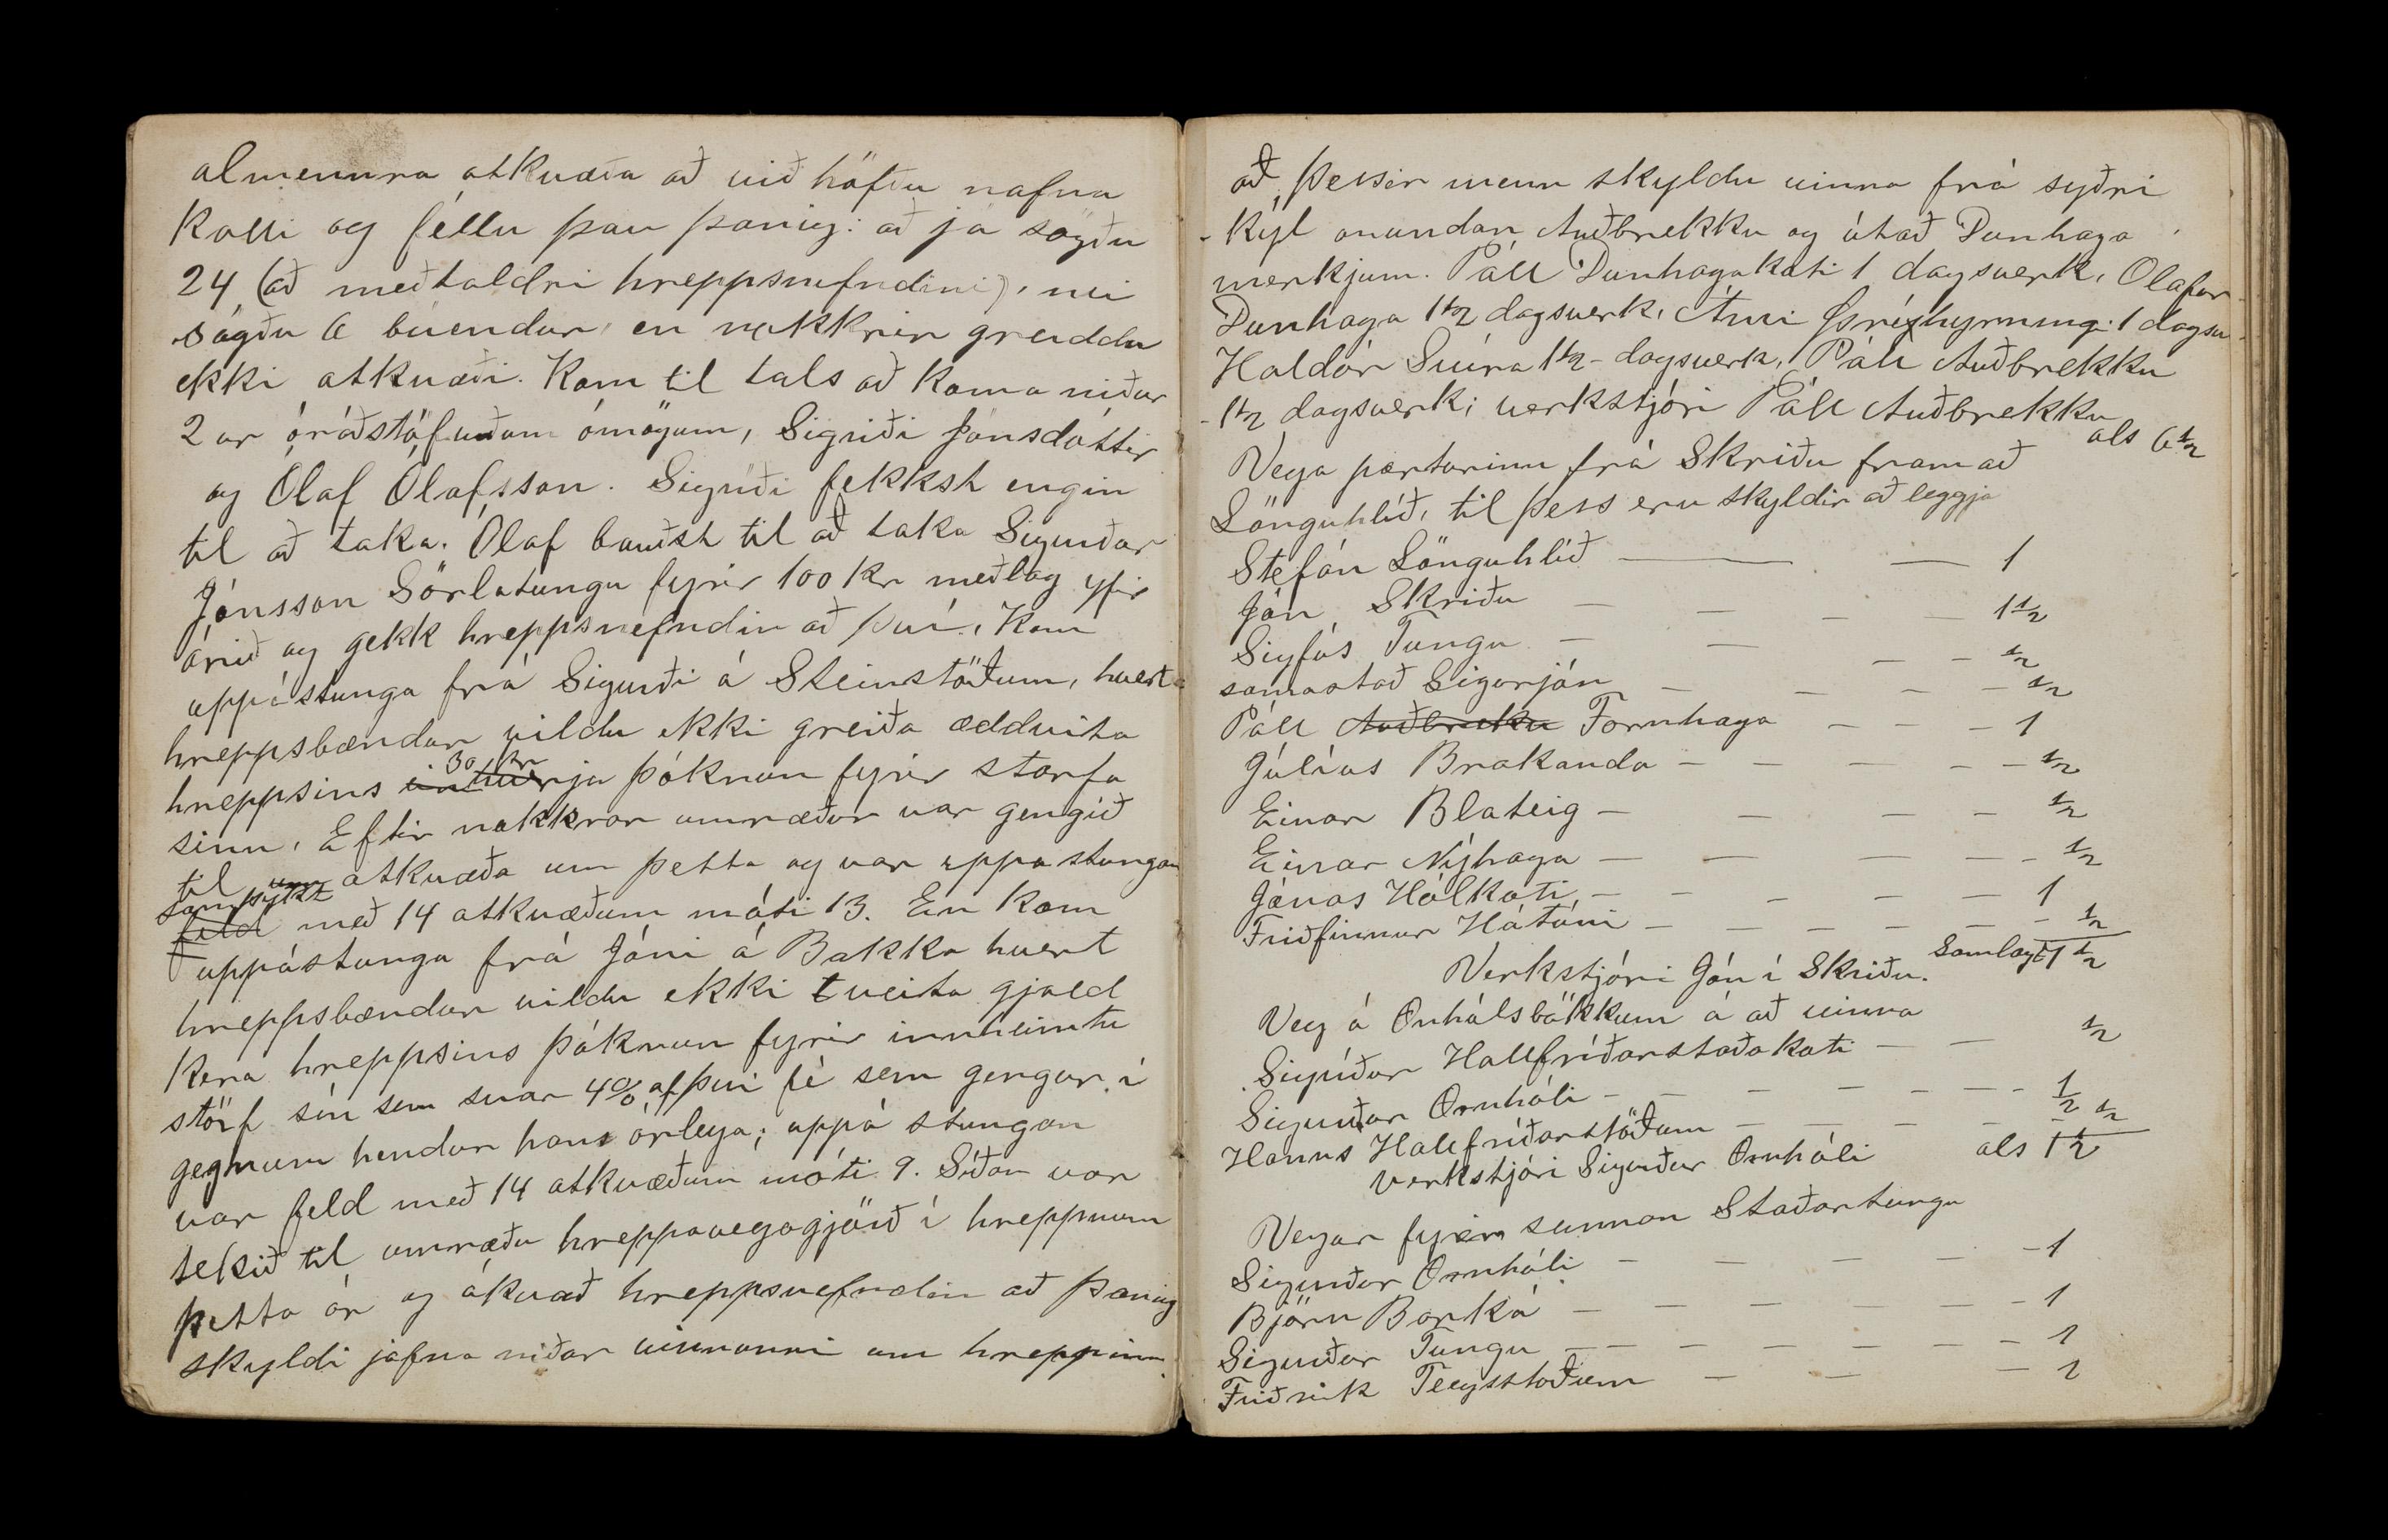 almennra atkvæða að við höfðu nafna
kalli og féllu þau þanig: að já sögðu
24 (að meðtaldri hreppsnefndini), nei
sögðu 6 búendur, en nokkrir greiddu
ekki atkvæði. Kom til tals að koma niður
2ur óráðstöfuðum ómögum, Sigríði Jónsdóttir
og Ólaf Ólafsson. Sigríði fekksh engin
til að taka. Ólaf bauðsh til að taka Sigurður
Jónsson Sörlatungu fyrir 100 kr meðlag yfir
árið og gekk hreppsnefndin að því. Kom
uppástunga frá Sigurði á Steinstöðum, hvert
hreppsbændur vildu ekki greiða oddvita
hreppsins 30 kr þóknun fyrir starfa
sinn. Eftir nokkrar umræður var gengið
til um atkvæða um þetta og var uppa stungan
samþykt
feld með 14 atkvæðum móti 13. En kom
uppástunga frá Jóni á Bakka hvert
hreppsbændur vildu ekki veita gjald
kera hreppsins þóknun fyrir innheimtu
störf sín sem svar 4% af því fé sem gengur í
gegnum hendur hans árlega; uppá stungan
var feld með 14 atkvæðum móti 9. Síðan var
tekið til umræðu hreppavegagjörð í hreppnum
þetta ár og ákvað hreppsnefndin að þanig
skyldi jafna niður vinnunni um hreppinn.
að, þessir menn skyldu vinna frá syðri
- Kýl onundan Auðbrekku og útað Dunhaga
merkjum. Páll Dunhagakoti 1 dagsverk, Olafur
Dunhaga 1 1/2 dagsverk, Árni Þríhyrning: 1 dagsv
Haldór Stúra 1 1/2 - dagsverk, Páll Auðbrekku
- 1 1/2 dagsverk; verkstjóri Páll Auðbrekku
als 6 1/2
Vega parturinn frá Skriðu framað
Lönguhlíð, til þess eru skyldir að leggja
Stefán Lönguhlíð — — 1
Jón Skriðu — — — — 1 1/2
Sigfús Tungu — — — — 1/2
samastað Sigurjón — — — — 1/2
Páll Auðbrekku Fornhaga — — — 1
Júlíus Brakanda — — — — — 1/2
Einar Blateig — — — — 1/2
Einar Nýhaga — — — — — 1/2
Jónas Hólkoti — — — — — 1
Friðfinnur Hátúni — — — — — — — 1/2
Verkstjóri Jón í Skriðu. Samlagt 7 1/2
Veg á Ónhálsbökkum á að vinna
Sigríður Hallfríðarstaðakoti — — 1/2
Sigurður Ornhóli — — — — — — — 1/2
Hanns Hallfríðarstöðum — — — — — 1/2
verkstjóri Sigurður Ornhóli als 1 1/2
Vegur fyrir sunnan Staðartungu
Sigurður Ornhóli — — — — — 1
Björn Barká — — — — — 1
Sigurður Tungu — — — — — — — 1
Friðrik Flögustoðum — — — 1